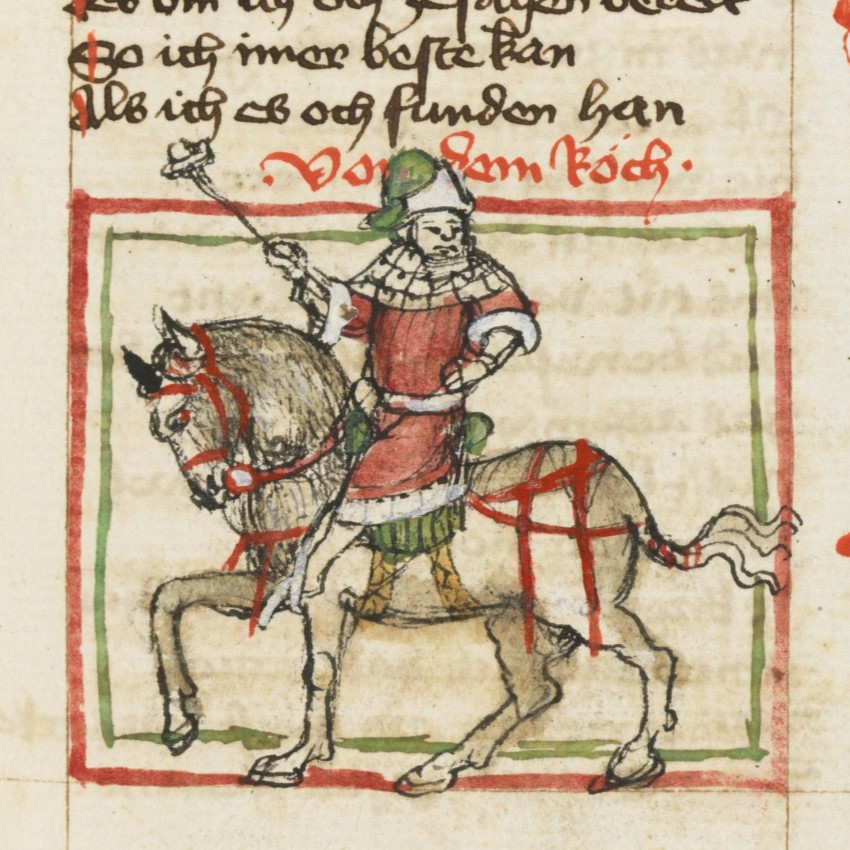 So ich imer beste kan
Als ich es och funden han
Von dem Roch.